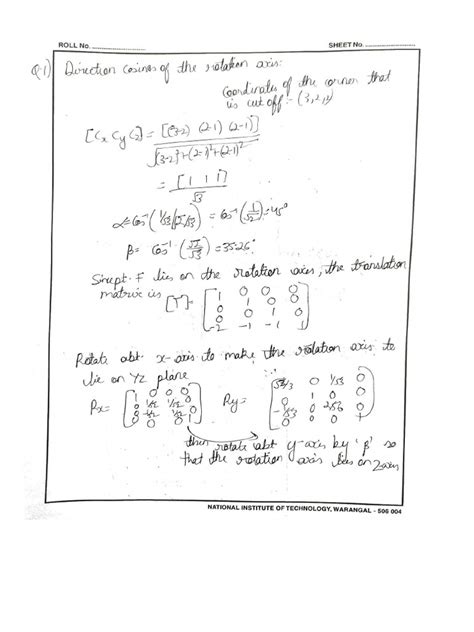 ROLL No. SHEET No.
Q1) Direction cosines of the rotation axis:
Coordinates of the corner that
is cut off :- (3,2,2)
[Cx Cy Cz] = [(3-2) (2-1) (2-1)]
√(3-2)²+(2-1)²+(2-1)²
= [1 1 1]
√3
α = Cos⁻¹(1/√3/√2/√3) = Cos⁻¹(1/√2) = 45°
β = Cos⁻¹(√2/√3) = 35.26°
Since pt. F lies on the rotation axis, the translation
matrix is [T] = [1 0 0 0
0 1 0 0
0 0 1 0
-2 -1 -1 1]
Rotate abt x-axis to make the rotation axis to
lie on YZ plane
Rx = [1 0 0 0
0 1/√2 1/√2 0
0 1/√2 0
0 0 0 1]
Ry = [0 1/√3 0
0 1 0 0
0 0
0 0 0]
then rotate abt y-axis by 'β' so
that the rotation axis lies on Z axis
NATIONAL INSTITUTE OF TECHNOLOGY, WARANGAL - 506 004